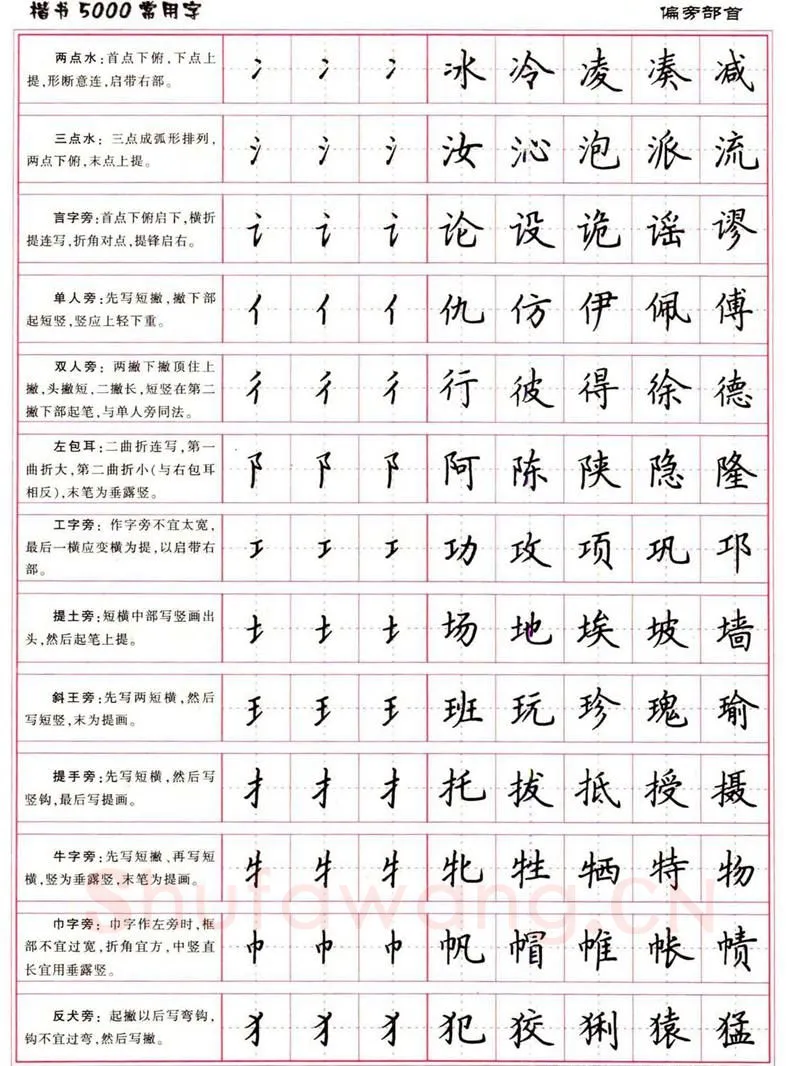 楷书5000常用字
偏旁部首
两点水：首点下俯，下点上
提，形断意连，启带右部。
冫 冫 冫 冰 冷 凌 凑 减
三点水：三点成弧形排列，
两点下俯，末点上提。
氵 氵 氵 汝 沁 泡 派 流
言字旁：首点下俯启下，横折
提连写，折角对点，提锋启右。
讠 讠 讠 论 设 诡 谣 谬
单人旁：先写短撇，撇下部
起短竖，竖应上轻下重。
亻 亻 亻 仇 仿 伊 佩 傅
双人旁：两撇下撇顶住上
撇，头撇短，二撇长，短竖在第二
撇下部起笔，与单人旁同法。
彳 彳 彳 行 彼 得 徐 德
左包耳：二曲折连写，第一
曲折大，第二曲折小(与右包耳
相反)，末笔为垂露竖。
阝 阝 阝 阿 陈 陕 隐 隆
工字旁：作字旁不宜太宽，
最后一横应变横为提，以启带右
部。
工 工 工 功 攻 项 巩 邛
提土旁：短横中部写竖画出
头，然后起笔上提。
土 土 土 场 地 埃 坡 墙
斜王旁：先写两短横，然后
写短竖，末为提画。
王 王 王 班 玩 珍 瑰 瑜
提手旁：先写短横，然后写
竖钩，最后写提画。
扌 扌 扌 托 拔 抵 授 摄
牛字旁：先写短撇、再写短
横，竖为垂露竖，末笔为提画。
牜 牜 牜 牝 牲 牺 特 物
巾字旁：巾字作左旁时，框
部不宜过宽，折角宜方，中竖直
长宜用垂露竖。
巾 巾 巾 帆 帽 帷 帐 帻
反犬旁：起撇以后写弯钩，
钩不宜过弯，然后写撇。
犭 犭 犭 犯 狡 猁 猿 猛
Shufawang.CN